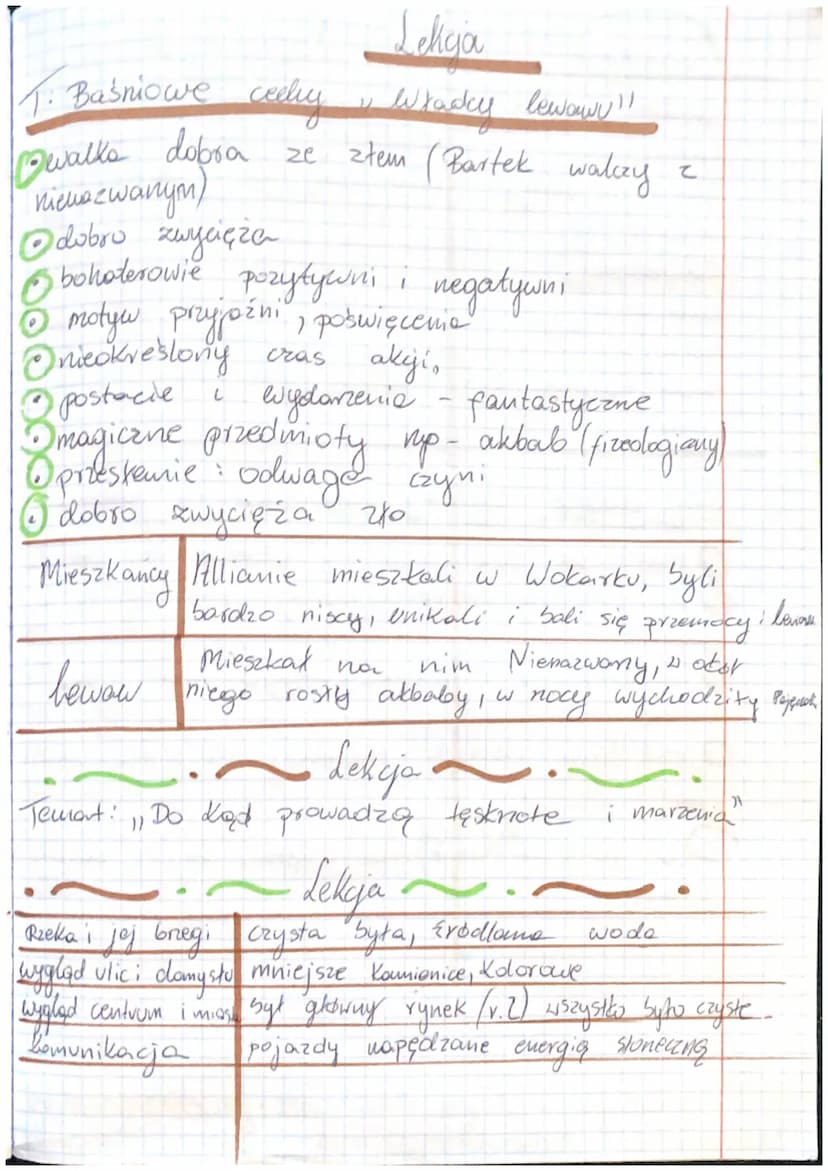 Lekcja
T: Baśniowe cechy „Władcy lewawu"
walka dobra ze złem (Bartek walczy z
nienazwanym)
dobro zwycięża
bohaterowie pozytywni i negatywni
motyw przyjaźni, poświęcenia
nieokreślony czas akcji,
postacie i wydarzenia - fantastyczne
magiczne przedmioty np - akbab
: odwaga czyni
dobro zwycięża zło
Mieszkańcy
Allianie mieszkali w Wokarku, byli
bardzo niscy, unikali i bali się przemocy i lewawu
Lewaw
Mieszkał na nim Nienazwany,
niego rosły akbaby, w nocy wychodziły
Lekcja
Temat: „Do kąd prowadzą tęsknote i marzenia"
Lekcja
Rzeka i jej brzegi
czysta była, źródlana woda
wygląd ulic i
mniejsze kamienice, kolorowe
wygląd centrum i
był główny rynek (r.2) wszystko było czyste
komunikacja
pojazdy napędzane energią słoneczną